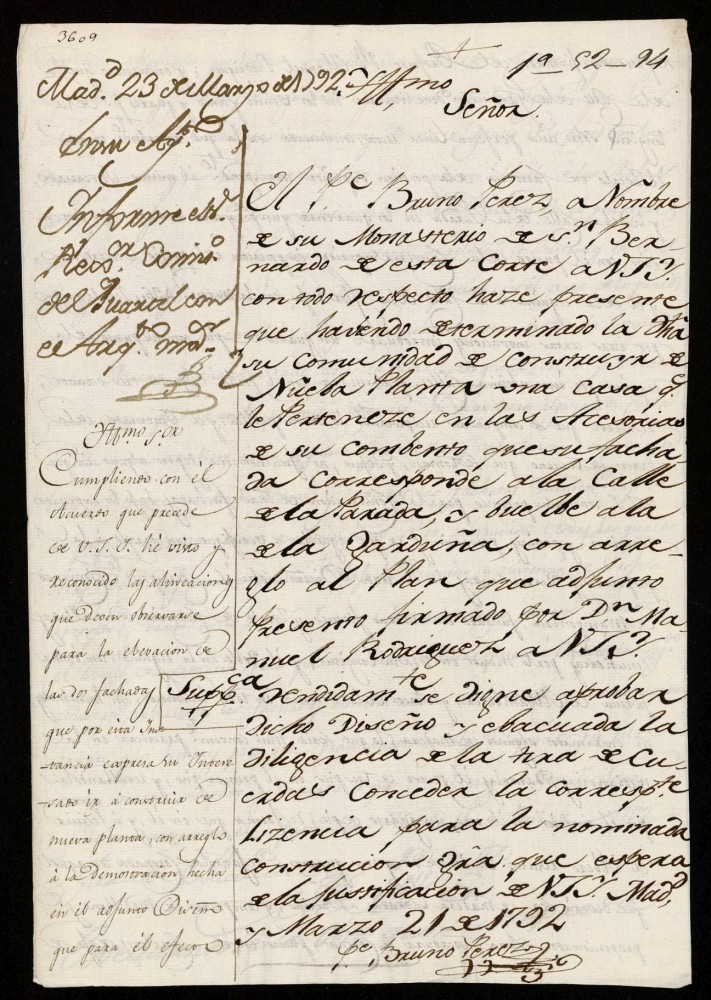 3609
1ª-52-94
Mad.d 23 de Marzo de 1792.
En su Ay.to
Informe el S.r
Reg.or Comis.o
del Quartel con
el Arq.to m.or
Yll.mo S.or
Cumpliendo con el
Acuerdo que precede
de V.S.Y. hé visto y
reconocido las alineaciones
que deven observarse
para la elevacion de
las dos fachadas
que por esta Yns
tancia expresa su Intere-
sado ir á construir de
nueva planta, con arreglo
á la demostracion hecha
en él adjunto Diseño
que para él efecto
Yll.mo
Señor.
El P.e Bruno Perez, a Nombre
de su Monasterio de S.n Ber-
nardo de esta Corte a V.S.Y.
con todo respecto haze presente
que haviendo determinado la dha
su comunidad de construyr de
Nueba Planta una casa, q.e
le Perteneze en las Acesorias
de su combento que su facha
da corresponde a la Calle
de la Parada, y buelbe a la
de la Garduña, con arre-
glo al Plan que adjunto
Presento firmado por D.n Ma-
nuel Rodriguez a V.S.Y.
Supp.ca rendidam.te se digne aprobar
dicho Diseño y ebacuada la
diligencia de la tira de Cu-
erdas Conceder la corresp.te
Lizencia para la nominada
construcion Grã. que espera
de la Justificacion de V.S.Y. Mad.d
y Marzo 21 de 1792
P.e Bruno Perez